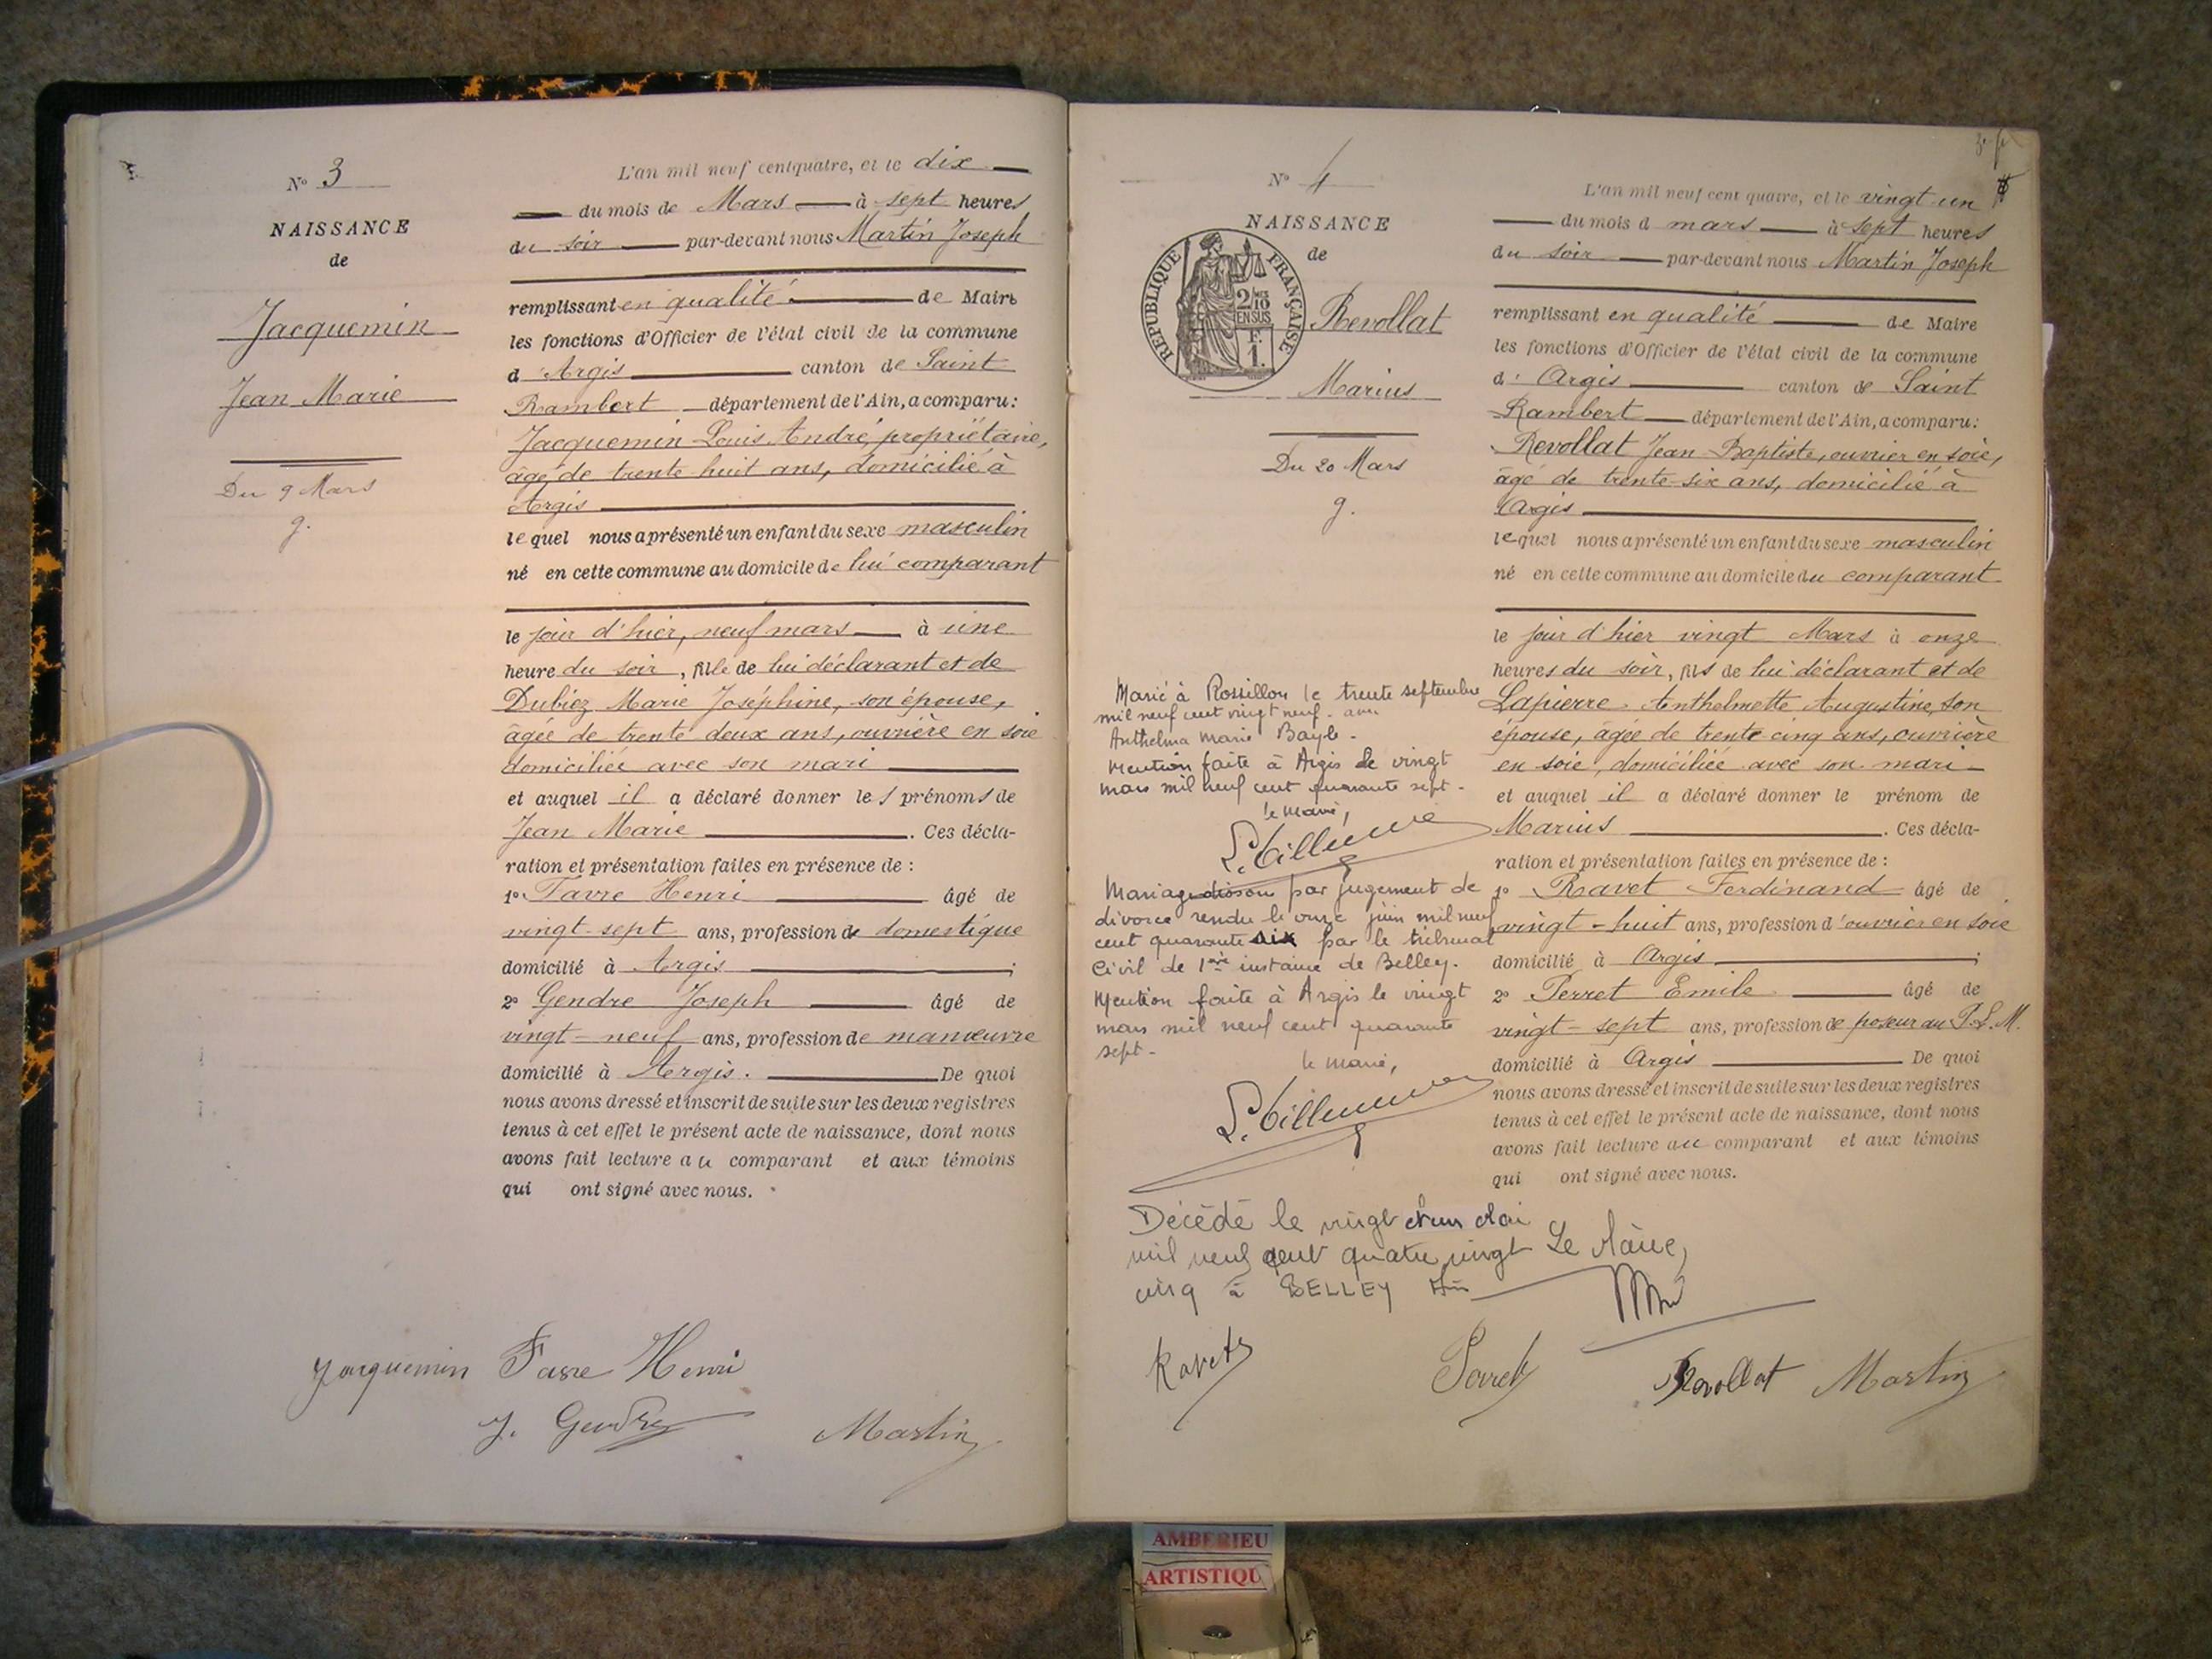 N° 3
NAISSANCE
de
Jacquemin
Jean Marie
Du 9 Mars
g.
L'an mil neuf cent quatre, et le dix
du mois de Mars à sept heures
du soir par-devant nous Martin Joseph
remplissant en qualité de Maire
les fonctions d'Officier de l'état civil de la commune
d'Argis canton de Saint
Rambert département de l'Ain, a comparu:
Jacquemin Louis André, propriétaire,
âgé de trente huit ans, domicilié à
Argis
lequel nous a présenté un enfant du sexe masculin
né en cette commune au domicile de lui comparant
le jour d'hier, neuf mars à une
heure du soir, fils de lui déclarant et de
Dubiez Marie Joséphine, son épouse,
âgée de trente deux ans, ouvrière en soie
domiciliée avec son mari
et auquel il a déclaré donner les prénoms de
Jean Marie. Ces décla-
ration et présentation faites en présence de :
1° Favre Henri âgé de
vingt-sept ans, profession de domestique
domicilié à Argis ;
2° Gendre Joseph âgé de
vingt-neuf ans, profession de manœuvre
domicilié à Argis. De quoi
nous avons dressé et inscrit de suite sur les deux registres
tenus à cet effet le présent acte de naissance, dont nous
avons fait lecture au comparant et aux témoins
qui ont signé avec nous.
Jacquemin Favre Henri
J. Gendre Martin
N° 4
NAISSANCE
de
REPUBLIQUE FRANÇAISE
2/10 EN SUS
F. 1.
Revollat
Marius
Du 20 Mars
g.
Marié à Rossillon le trente septembre
mil neuf cent vingt neuf avec
Anthelma Marie Bayle -
Mention faite à Argis le vingt
mars mil neuf cent quarante sept -
le Maire,
Mariage dissous par jugement de
divorce rendu le onze juin mil neuf
cent quarante six par le tribunal
Civil de 1ère instance de Belley.
Mention faite à Argis le vingt
mars mil neuf cent quarante
sept -
le Maire,
Décédé le vingt et un Mai
mil neuf cent quatre vingt
cinq à BELLEY Ain
Le Maire,
L'an mil neuf cent quatre, et le vingt-un
du mois d mars à sept heures
du soir par-devant nous Martin Joseph
remplissant en qualité de Maire
les fonctions d'Officier de l'état civil de la commune
d'Argis canton de Saint
Rambert département de l'Ain, a comparu:
Revollat Jean Baptiste, ouvrier en soie,
âgé de trente-six ans, domicilié à
Argis
lequel nous a présenté un enfant du sexe masculin
né en cette commune au domicile du comparant
le jour d'hier vingt Mars à onze
heures du soir, fils de lui déclarant et de
Lapierre Anthelmette Augustine, son
épouse, âgée de trente cinq ans, ouvrière
en soie, domiciliée avec son mari
et auquel il a déclaré donner le prénom de
Marius. Ces décla-
ration et présentation faites en présence de :
1° Ravet Ferdinand âgé de
vingt-huit ans, profession d'ouvrier en soie
domicilié à Argis ;
2° Perret Emile âgé de
vingt-sept ans, profession de poseur au P.L.M.
domicilié à Argis De quoi
nous avons dressé et inscrit de suite sur les deux registres
tenus à cet effet le présent acte de naissance, dont nous
avons fait lecture au comparant et aux témoins
qui ont signé avec nous.
Ravet Perret Revollat Martin
AMBERIEU
ARTISTIQU